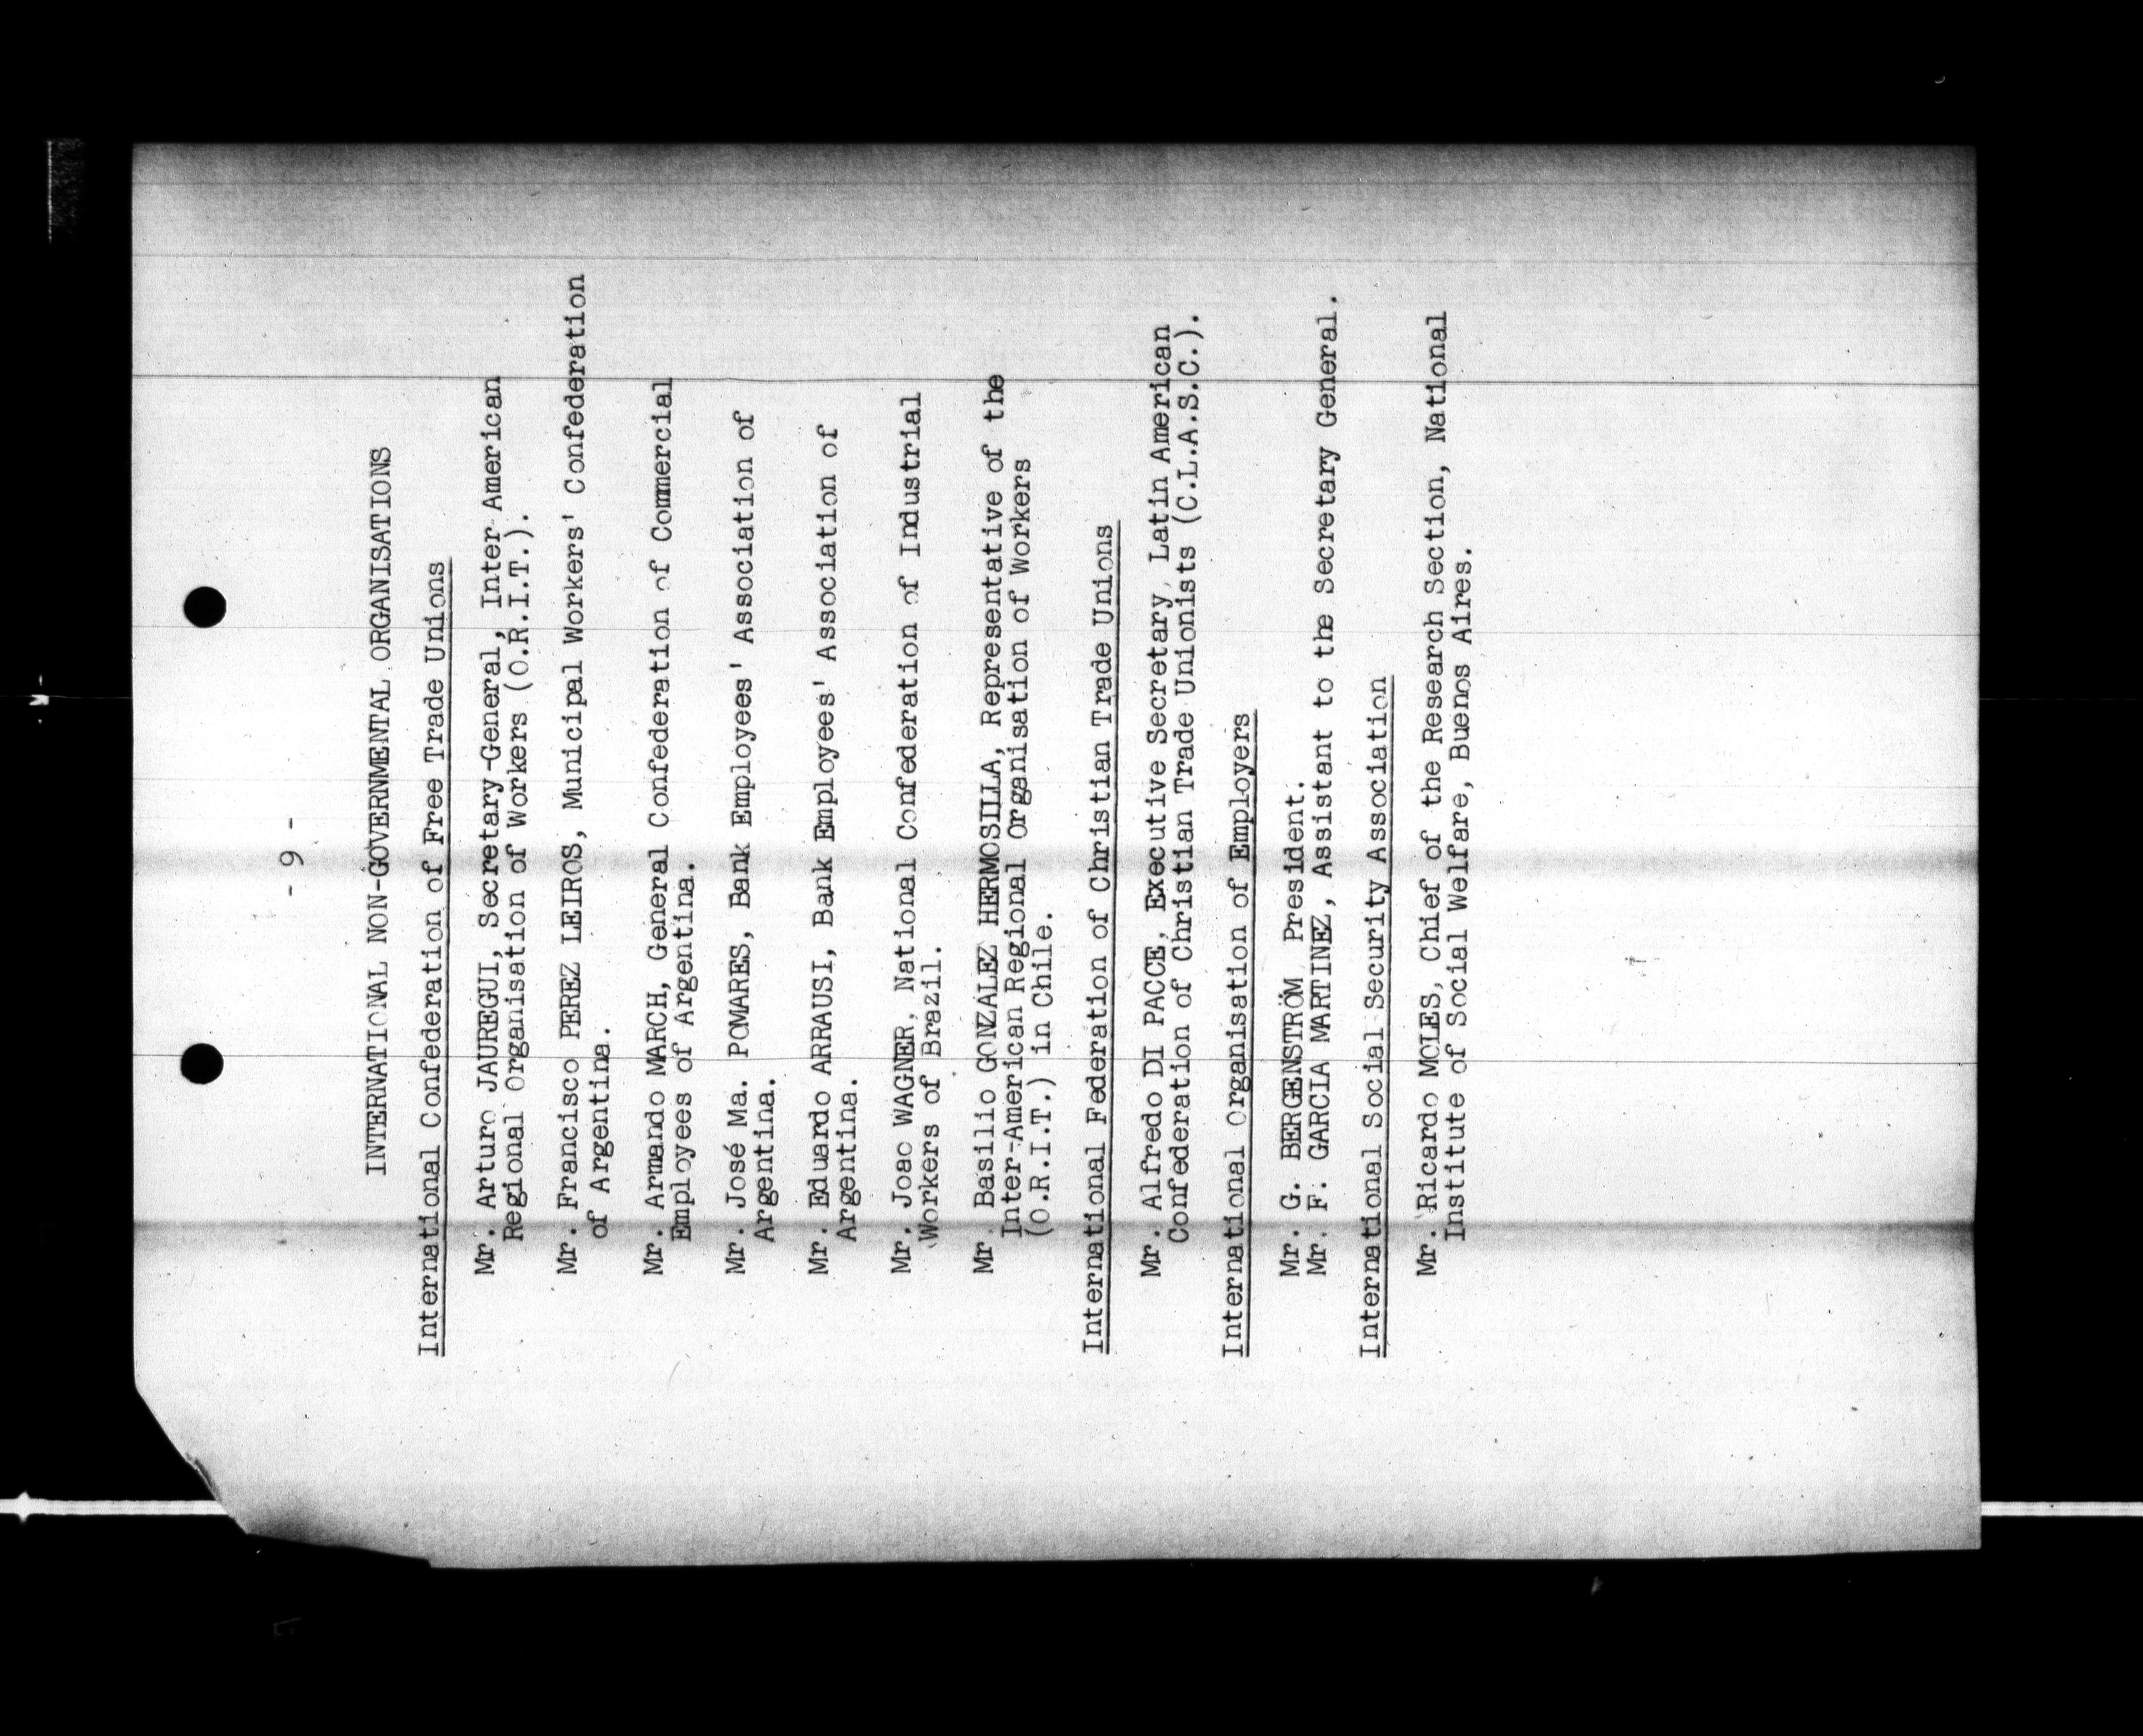 - 9 -
INTERNATIONAL NON-GOVERNMENTAL ORGANISATIONS
International Confederation of Free Trade Unions
Mr. Arturo JAUREGUI, Secretary-General, Inter-American
Regional Organisation of Workers (O.R.I.T.).
Mr. Francisco PEREZ LEIROS, Municipal Workers' Confederation
of Argentina.
Mr. Armando MARCH, General Confederation of Commercial
Employees of Argentina.
Mr. José Ma. POMARES, Bank Employees' Association of
Argentina.
Mr. Eduardo ARRAUSI, Bank Employees' Association of
Argentina.
Mr. Joao WAGNER, National Confederation of Industrial
Workers of Brazil.
Mr. Basilio GONZALEZ HERMOSILLA, Representative of the
Inter-American Regional Organisation of Workers
(O.R.I.T.) in Chile.
International Federation of Christian Trade Unions
Mr. Alfredo DI PACCE, Executive Secretary, Latin American
Confederation of Christian Trade Unionists (C.L.A.S.C.).
International Organisation of Employers
Mr. G. BERGENSTRÖM President.
Mr. F. GARCIA MARTINEZ, Assistant to the Secretary General.
International Social Security Association
Mr. Ricardo MOLES, Chief of the Research Section, National
Institute of Social Welfare, Buenos Aires.